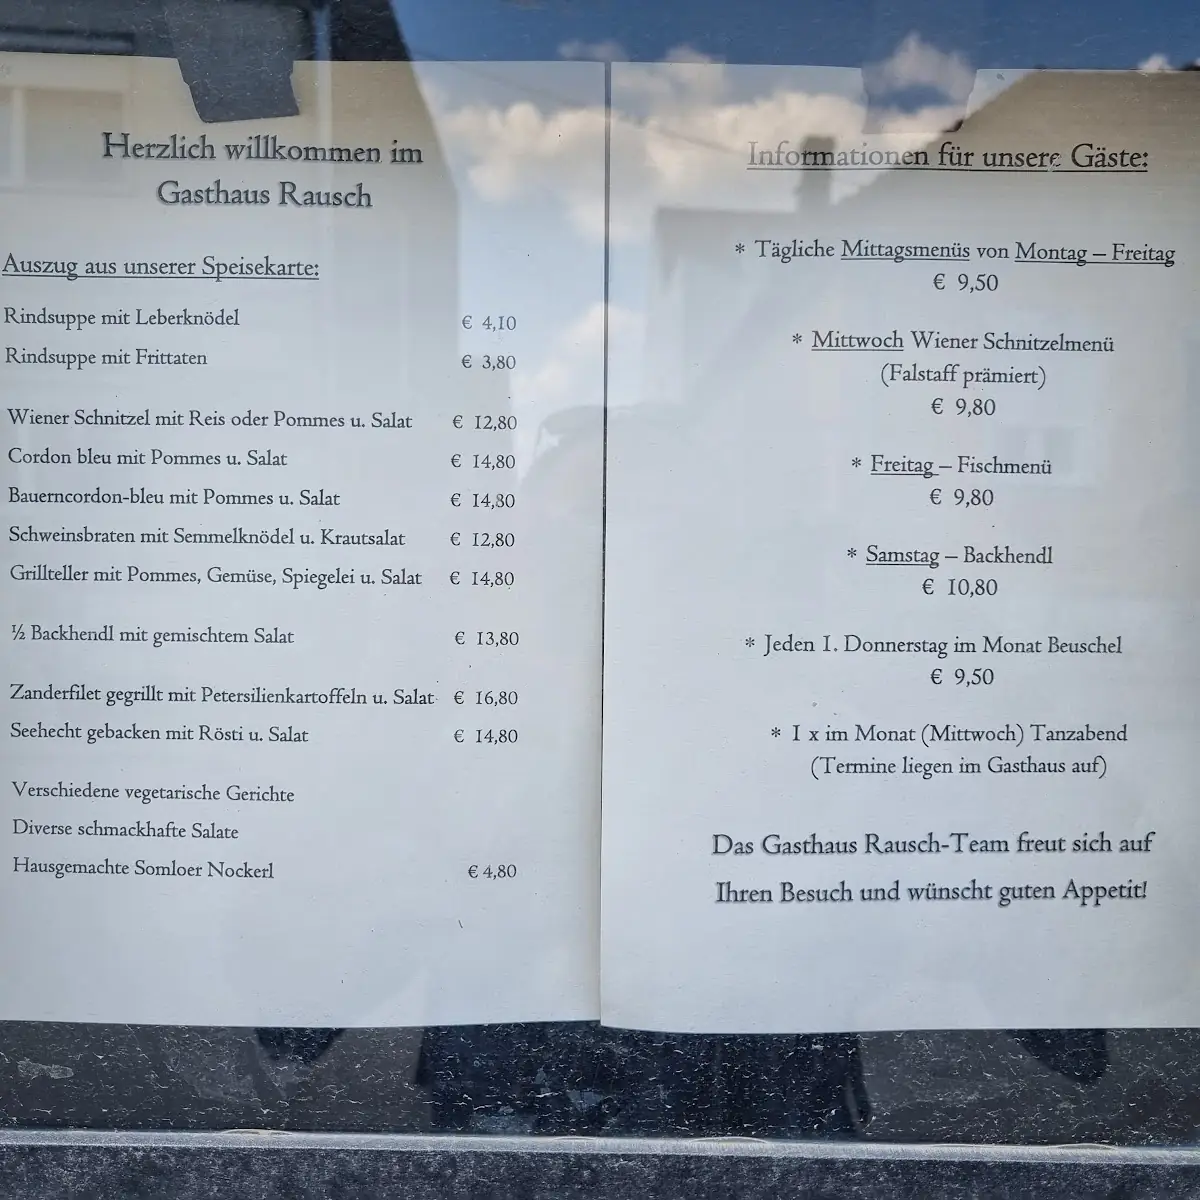 Herzlich willkommen im
Gasthaus Rausch
Auszug aus unserer Speisekarte:
Rindsuppe mit Leberknödel € 4,10
Rindsuppe mit Frittaten € 3,80
Wiener Schnitzel mit Reis oder Pommes u. Salat € 12,80
Cordon bleu mit Pommes u. Salat € 14,80
Bauerncordon-bleu mit Pommes u. Salat € 14,80
Schweinsbraten mit Semmelknödel u. Krautsalat € 12,80
Grillteller mit Pommes, Gemüse, Spiegelei u. Salat € 14,80
½ Backhendl mit gemischtem Salat € 13,80
Zanderfilet gegrillt mit Petersilienkartoffeln u. Salat € 16,80
Seehecht gebacken mit Rösti u. Salat € 14,80
Verschiedene vegetarische Gerichte
Diverse schmackhafte Salate
Hausgemachte Somloer Nockerl € 4,80
Informationen für unsere Gäste:
* Tägliche Mittagsmenüs von Montag – Freitag
€ 9,50
* Mittwoch Wiener Schnitzelmenü
(Falstaff prämiert)
€ 9,80
* Freitag – Fischmenü
€ 9,80
* Samstag – Backhendl
€ 10,80
* Jeden 1. Donnerstag im Monat Beuschel
€ 9,50
* 1 x im Monat (Mittwoch) Tanzabend
(Termine liegen im Gasthaus auf)
Das Gasthaus Rausch-Team freut sich auf
Ihren Besuch und wünscht guten Appetit!